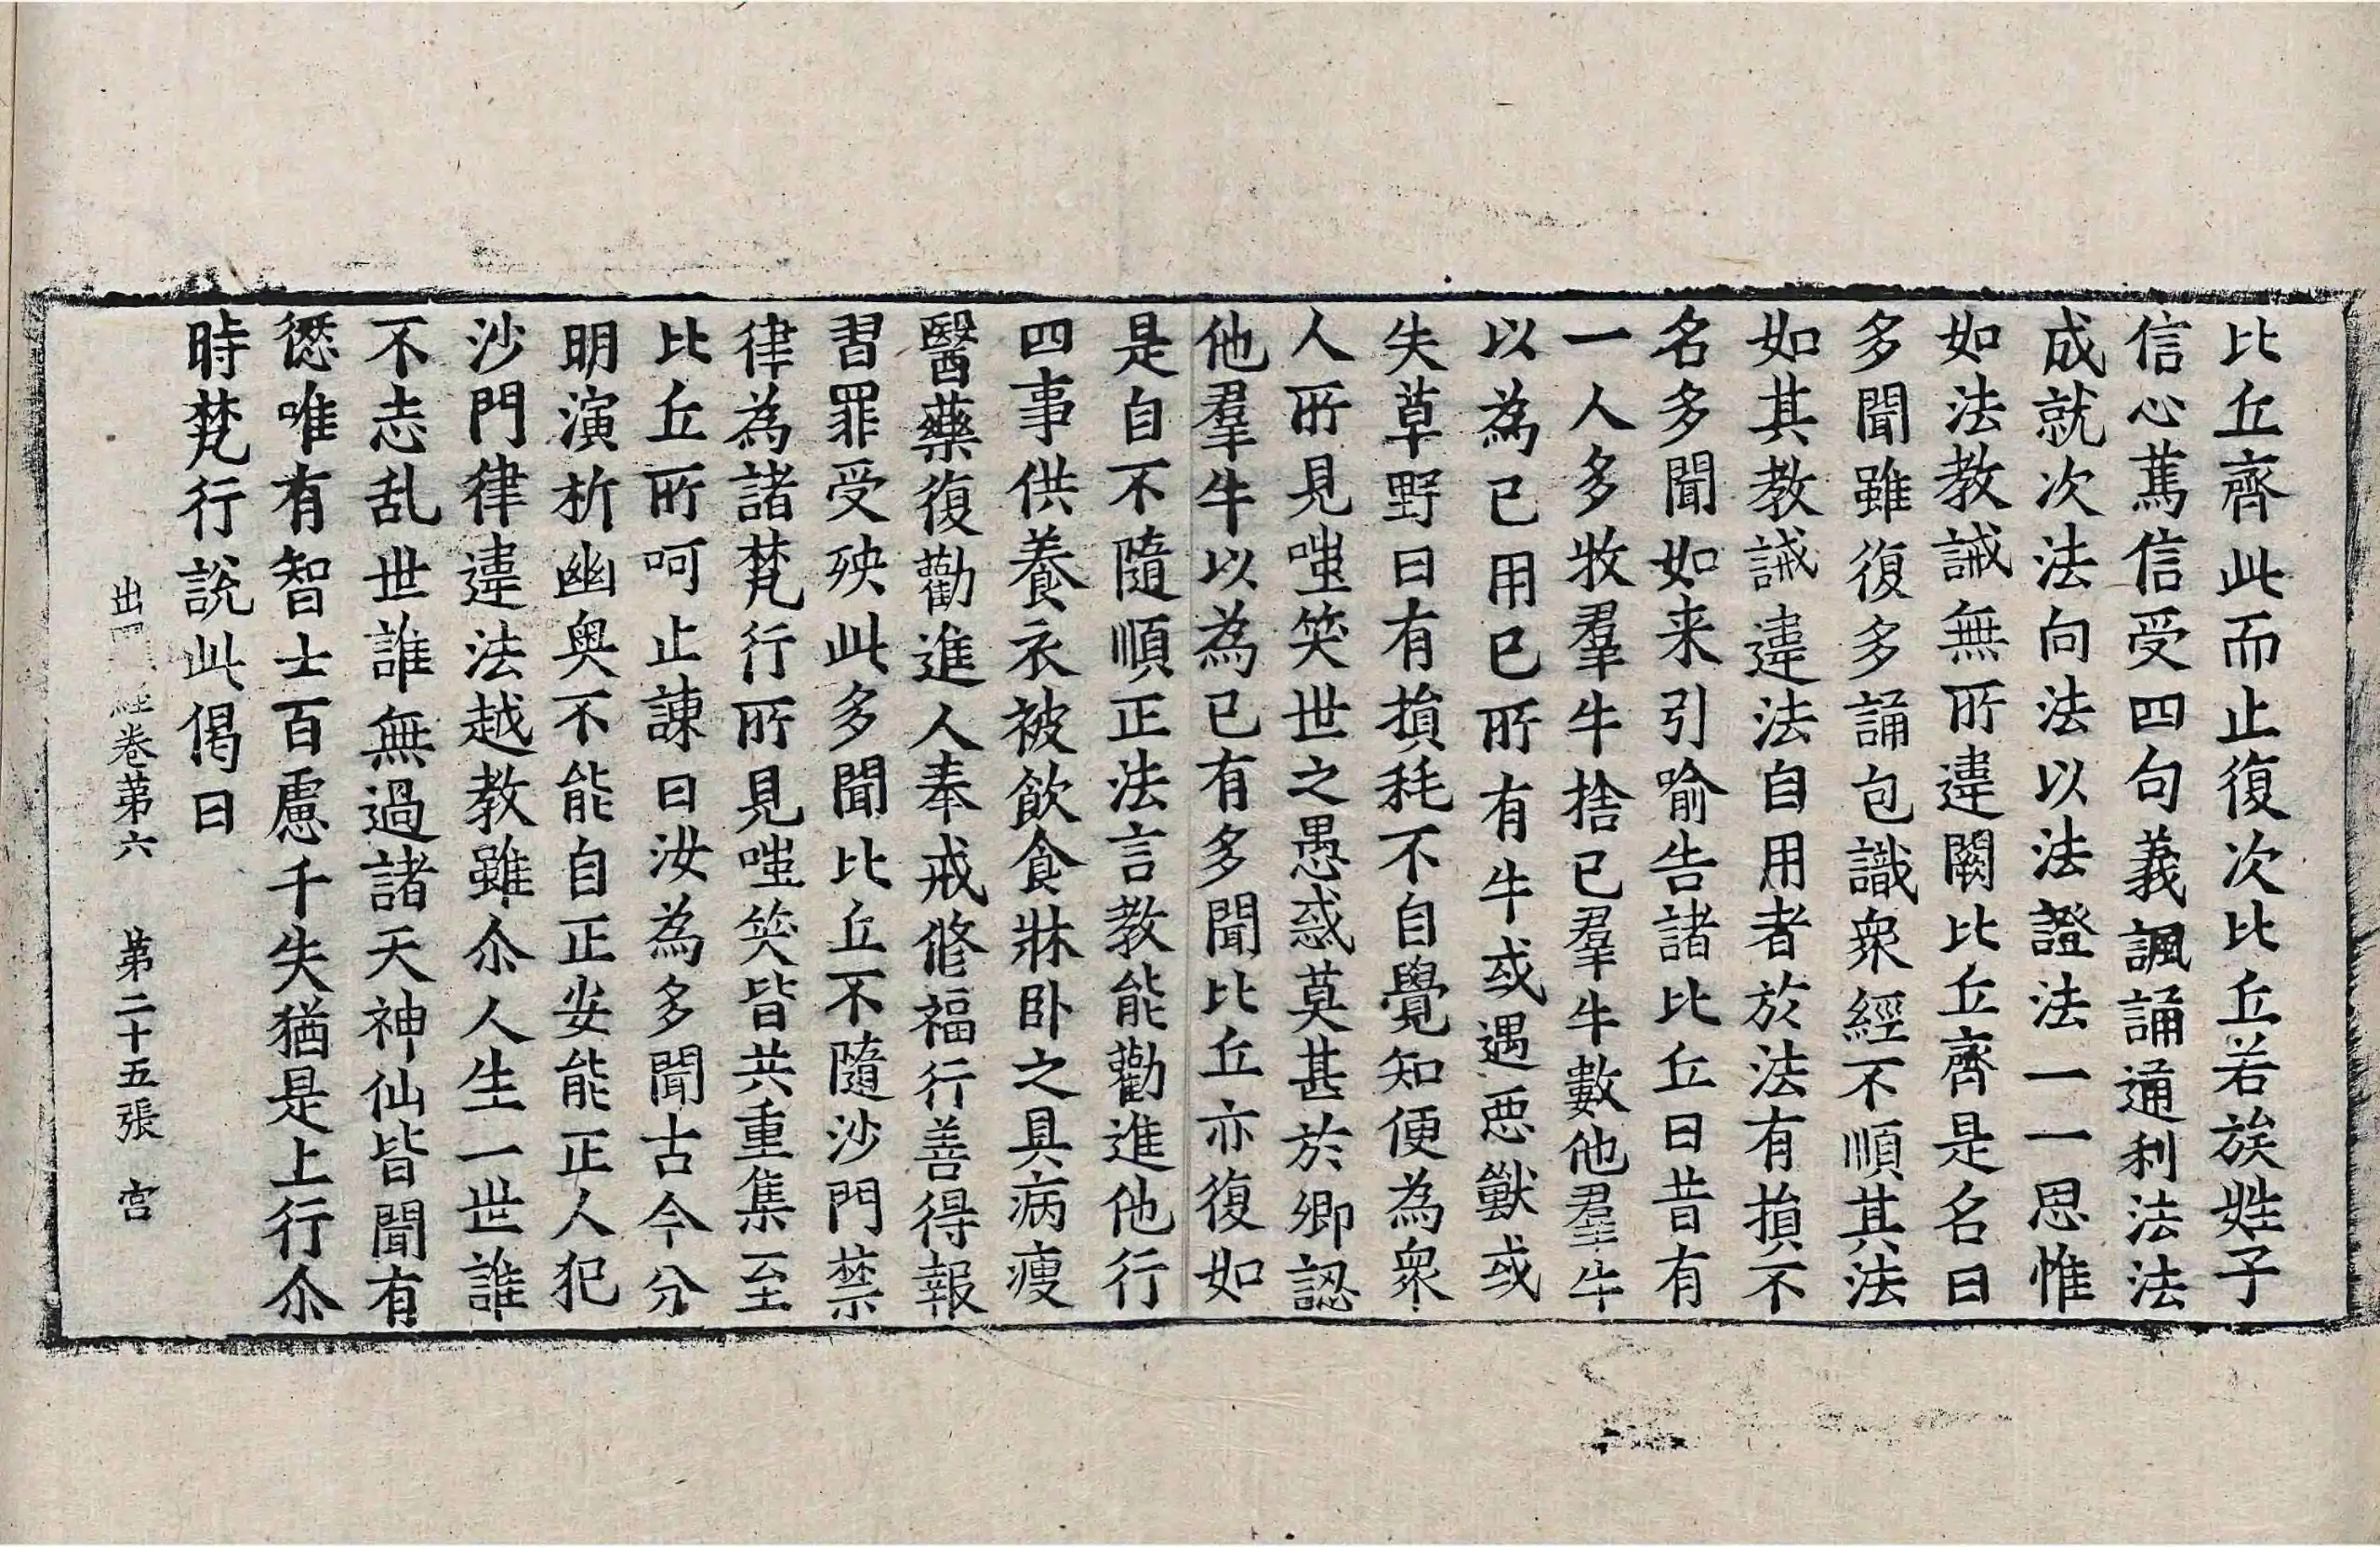 比丘齊此而止復次比丘若族姓子
信心萬信受四句義諷誦通利法法
成就次法向法以法證法一一思惟
如法教誡無所違闕比丘齊是名曰
多聞雖復多誦包識衆經不順其法
如其教誡違法自用者於法有損不
名多聞如来引喻告諸比丘曰昔有
一人多牧羣牛捨已羣牛數他羣牛
以為已用已所有牛或遇惡獸或
失草野日有損耗不自覺知便為衆
人所見嗤笑世之愚惑莫甚於卿認
他羣牛以為已有多聞比丘亦復如
是自不隨順正法言教能勸進他行
四事供養衣被飲食牀卧之具病瘦
醫藥復勸進人奉戒修福行善得報
習罪受殃此多聞比丘不隨沙門禁
律為諸梵行所見嗤笑皆共重集至
比丘所呵止諫曰汝為多聞古今分
明演析幽奥不能自正安能正人犯
沙門律違法越教雖尒人生一世誰
不志乱世誰無過諸天神仙皆聞有
愆唯有智士百慮千失猶是上行尒
時梵行說此偈曰
出 經卷苐六 苐二十五張 宫